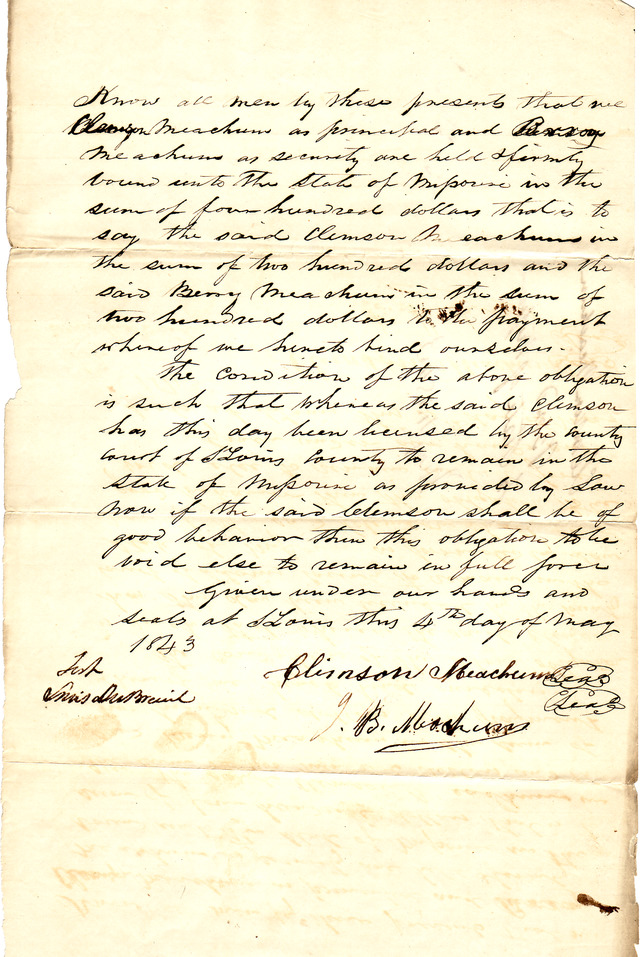 Know all men by these presents that we
Meachum as principal and Berry
Meachum as security are held & firmly
bound unto the State of Missouri in the
sum of four hundred dollars that is to
say the said Clemson Meachum in
the sum of two hundred dollars and the
said Berry Meachum in the sum of
two hundred dollars to the payment
whereof we hereto bind ourselves.
The Condition of the above obligation
is such that whereas the said Clemson
has this day been licensed by the county
court of St Louis County to remain in the
State of Missouri as provided by Law
Now if the said Clemson shall be of
good behavior then this obligation to be
void else to remain in full force
Given under our hands and
seals at St Louis this 4th day of May
1843
Test
Clemson Meachum Seal
Louis DuBreuil
Seal
J. B. Meachum